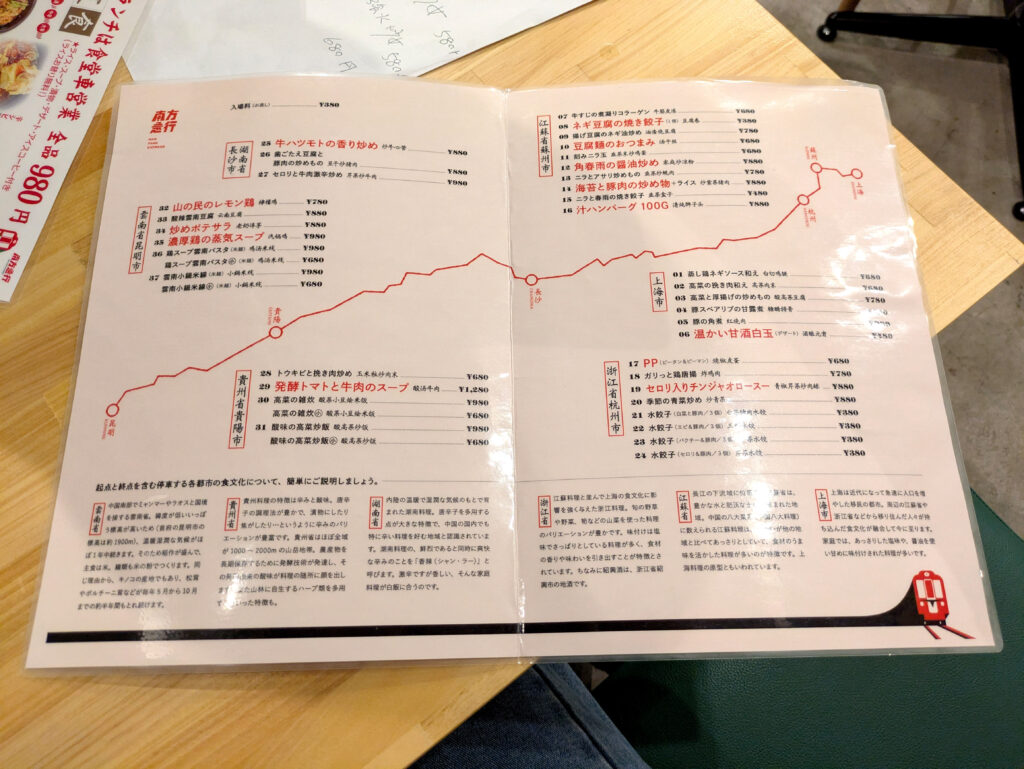 ランチは食堂車営業 全品980円
580円
680円
南方
急行
入場料（お通し） ¥380
湖南省
長沙市
25 牛ハツモトの香り炒め 炒牛心管 ¥880
26 歯ごたえ豆腐と
豚肉の炒めもの 豆干炒猪肉 ¥880
27 セロリと牛肉激辛炒め 芹菜炒牛肉 ¥980
雲南省昆明市
32 山の民のレモン鶏 檸檬鶏 ¥780
33 酸辣雲南豆腐 云南豆腐 ¥880
34 炒めポテサラ 老奶洋芋 ¥880
35 濃厚鶏の蒸気スープ 汽锅鶏 ¥980
36 鶏スープ雲南パスタ（米麺） 鸡汤米线 ¥980
鶏スープ雲南パスタ㊙（米麺） 鸡汤米线 ¥680
37 雲南小鍋米線（米麺） 小鍋米线 ¥980
雲南小鍋米線㊙（米麺） 小鍋米线 ¥680
貴州省貴陽市
28 トウキビと挽き肉炒め 玉米粒炒肉末 ¥680
29 発酵トマトと牛肉のスープ 酸汤牛肉 ¥1,280
30 高菜の雑炊 酸菜小豆烩米飯 ¥980
高菜の雑炊㊙ 酸菜小豆烩米飯 ¥680
31 酸味の高菜炒飯 酸高菜炒飯 ¥980
酸味の高菜炒飯㊙ 酸高菜炒飯 ¥680
江蘇省蘇州市
07 牛すじの煮凝りコラーゲン 牛筋皮凍 ¥680
08 ネギ豆腐の焼き餃子（1個） 豆腐卷 ¥380
09 揚げ豆腐のネギ油炒め 油焖烧豆腐 ¥780
10 豆腐麺のおつまみ 汤干丝 ¥680
11 刻みニラ玉 韭菜末炒鸡蛋 ¥680
12 角春雨の醤油炒め 家庭炒凉粉 ¥880
13 ニラとアサリ炒めもの 韭菜炒蚬肉 ¥780
14 海苔と豚肉の炒め物+ライス 炒紫菜猪肉 ¥880
15 ニラと春雨の焼き餃子 韭菜盒子 ¥480
16 汁ハンバーグ 100G 清炖狮子头 ¥880
蘇州
上海
杭州
長沙
貴陽
昆明
上海市
01 蒸し鶏ネギソース和え 白切鸡腿 ¥680
02 高菜の挽き肉和え 高菜肉末 ¥680
03 高菜と厚揚げの炒めもの 酸高菜豆腐 ¥780
04 豚スペアリブの甘露煮 糖醋排骨
05 豚の角煮 红烧肉
06 温かい甘酒白玉（デザート） 酒酿元宵 ¥480
浙江省杭州市
17 PP（ピータン&ピーマン） 焼椒皮蛋 ¥680
18 ガリっと鶏唐揚 炸鸡肉 ¥780
19 セロリ入りチンジャオロースー 青椒芹菜炒肉絲 ¥880
20 季節の青菜炒め 炒青菜 ¥880
21 水餃子（白菜と豚肉／3個） ¥380
22 水餃子（エビ&豚肉／3個） ¥380
23 水餃子（パクチー&豚肉／3個） ¥380
24 水餃子（セロリ&豚肉／3個） ¥380
起点と終点を含む停車する各都市の食文化について、簡単にご説明しましょう。
雲南省
中国南部でミャンマーやラオスと国境
を接する雲南省。緯度が低いいっぽ
う標高が高いため（首府の昆明市の
標高は約1900m）、温暖湿潤な気候がほ
ぼ1年中続きます。そのため稲作が盛んで、
主食は米。麺類も米の粉でつくります。同
じ理由から、キノコの産地でもあり、松茸
やポルチーニ茸などが毎年5月から10月
までの約半年間もとれ続けます。
貴州省
貴州料理の特徴は辛みと酸味。唐辛
子の調理法が豊かで、漬物にしたり
焦がしたり…というように辛みのバリ
エーションが豊富です。貴州省はほぼ全域
が1000〜2000mの山岳地帯。農産物を
長期保存するために発酵技術が発達し、そ
の発酵由来の酸味が料理の随所に顔を出し
ます。また山林に自生するハーブ類を多用
するといった特徴も。
湖南省
内陸の温暖で湿潤な気候のもとで育
まれた湖南料理。唐辛子を多用する
点が大きな特徴で、中国の国内でも
特に辛い料理を好む地域と認識されていま
す。湖南料理の、鮮烈であると同時に爽快
な辛みのことを「香辣（シャン・ラー）」と
呼びます。激辛ですが香しい、そんな家庭
料理が白飯に合うのです。
浙江省
江蘇料理と並んで上海の食文化に影
響を強く与えた浙江料理。旬の野菜
や野草、筍などの山菜を使った料理
のバリエーションが豊かです。味付けは塩
味でさっぱりとしている料理が多く、食材
の香りや味わいを引き出すことが特徴とさ
れています。ちなみに紹興酒は、浙江省紹
興市の地酒です。
江蘇省
長江の下流域に位置する江蘇省は、
豊かな水と肥沃な土地に恵まれた地
域。中国の八大菜系（中国八大料理）
に数えられる江蘇料理は、味わいが他の地
域と比べてあっさりとしていて、食材のうま
味を活かした料理が多いのが特徴です。上
海料理の原型ともいわれています。
上海市
上海は近代になって急速に人口を増
やした移民の都市。周辺の江蘇省や
浙江省などから移り住んだ人々が持
ち込んだ食文化が融合して今に至ります。
家庭では、あっさりした塩味や、醤油を使
い甘めに味付けされた料理が多いです。